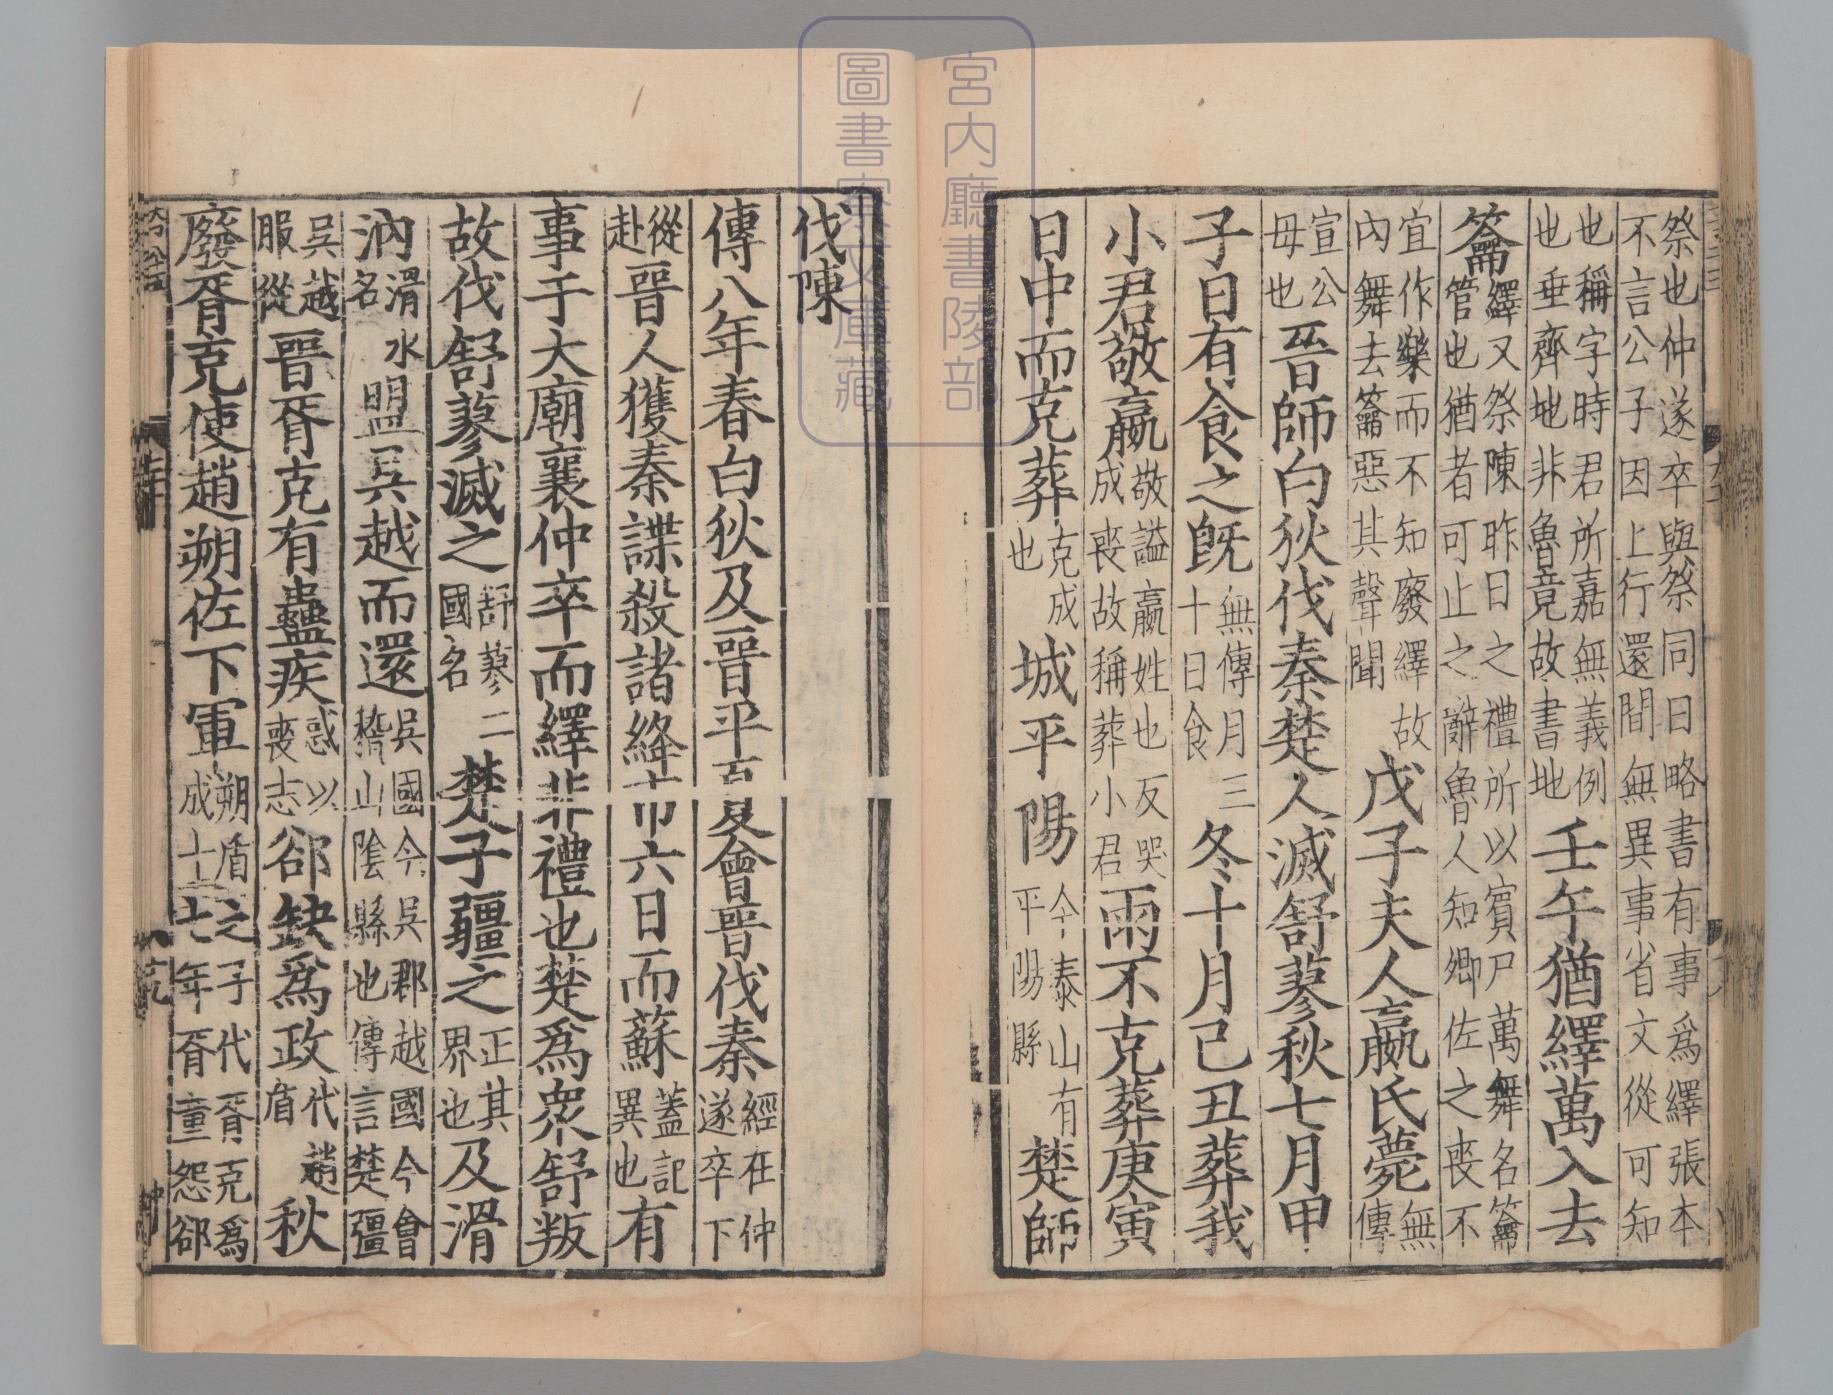 祭也仲遂卒與祭同日略書有事為繹張本
不言公子因上行還間無異事省文從可知
也稱字時君所嘉無義例
也垂齊地非魯竟故書地
壬午猶繹萬入去
籥
繹又祭陳昨日之禮所以賓尸萬舞名籥
管也猶者可止之辭魯人知卿佐之喪不
宜作樂而不知廢繹故
內舞去籥惡其聲聞
戊子夫人嬴氏薨
無
傳
宣公
母也
晉師白狄伐秦楚人滅舒蓼秋七月甲
子日有食之既
無傳月三
十日食
冬十月己丑葬我
小君敬嬴
敬謚嬴姓也反哭
成喪故稱葬小君
雨不克葬庚寅
日中而克葬
克成
也
城平陽
今泰山有
平陽縣
楚師
伐陳
傳八年春白狄及晉平夏會晉伐秦
經在仲
遂卒下
從
赴
晉人獲秦諜殺諸絳市六日而蘇
蓋記
異也
有
事于大廟襄仲卒而繹非禮也楚為眾舒叛
故伐舒蓼滅之
舒蓼二
國名
楚子疆之
正其
界也
及滑
汭
滑水
名
盟吳越而還
吳國今吳郡越國今會
稽山陰縣也傳言楚疆
吳越
服從
晉胥克有蠱疾
惑以
喪志
郤缺為政
代趙
盾
秋
廢胥克使趙朔佐下軍
朔盾之子代胥克為
成十七年胥童怨郤
宮內廳書陵部
圖書寮文庫藏